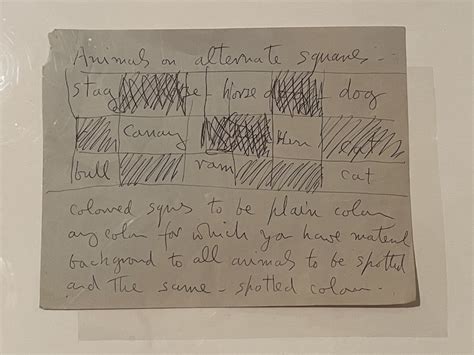 Animals on alternate squares -
stag horse dog
Canary Hen
bull ram cat
coloured sqrs to be plain colour
any colour for which you have material
background to all animals to be spotted
and the same - spotted colour -